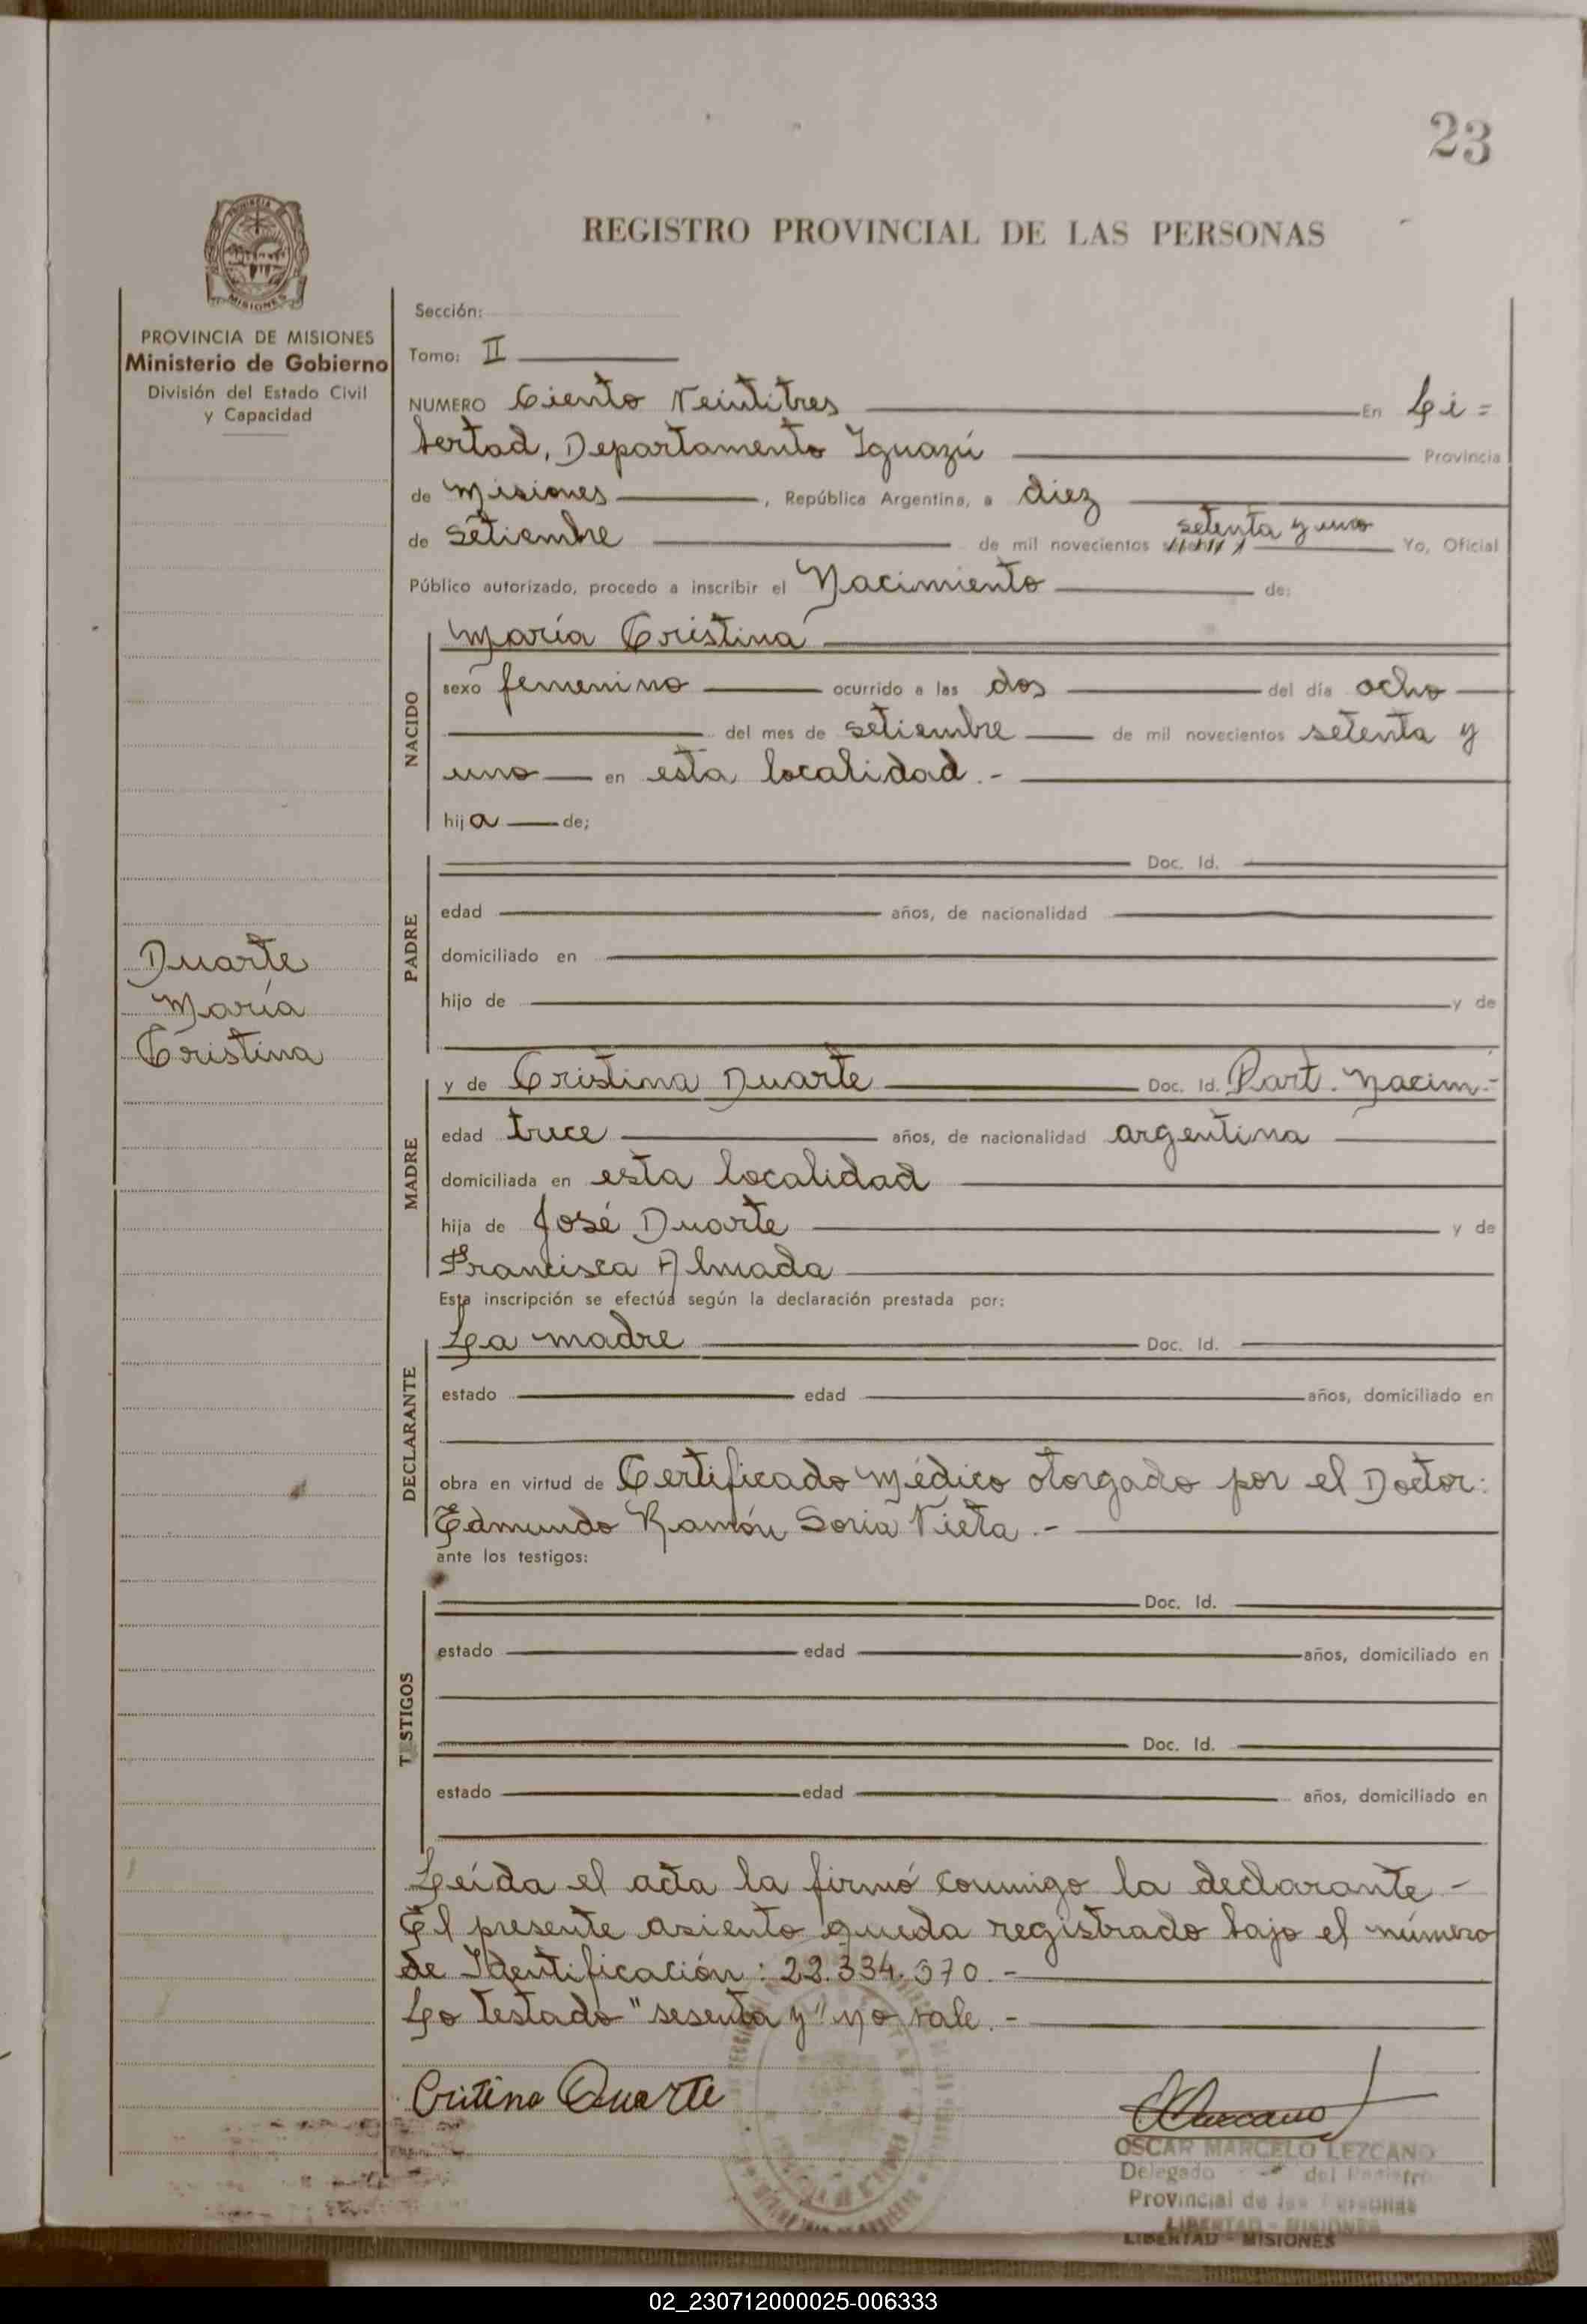 23
REGISTRO PROVINCIAL DE LAS PERSONAS
PROVINCIA
MISIONES
PROVINCIA DE MISIONES
Ministerio de Gobierno
División del Estado Civil
y Capacidad
Sección:
Tomo: II
NUMERO Ciento Veintitres En Li=
bertad, Departamento Iguazú Provincia
de Misiones, República Argentina, a diez
de setiembre de mil novecientos setenta y uno Yo, Oficial
Público autorizado, procedo a inscribir el Nacimiento de:
NACIDO
María Cristina
sexo femenino ocurrido a las dos del día ocho
del mes de setiembre de mil novecientos setenta y
uno en esta localidad.-
hija de;
PADRE
Doc. Id.
edad años, de nacionalidad
domiciliado en
hijo de y de
Duarte
María
Cristina
MADRE
y de Cristina Duarte Doc. Id. Part. Nacim.-
edad trece años, de nacionalidad argentina
domiciliada en esta localidad
hija de José Duarte y de
Francisca Almada
Esta inscripción se efectúa según la declaración prestada por:
DECLARANTE
La madre Doc. Id.
estado edad años, domiciliado en
obra en virtud de Certificado Médico otorgado por el Doctor:
Edmundo Ramón Soria Vieta.-
ante los testigos:
TESTIGOS
Doc. Id.
estado edad años, domiciliado en
Doc. Id.
estado edad años, domiciliado en
Leída el acta la firmó conmigo la declarante-
El presente asiento queda registrado bajo el número
de Identificación: 22.334.370.-
Lo testado "sesenta y" no vale.-
Critina Duarte
OSCAR MARCELO LEZCANO
Delegado del Registro
Provincial de las Personas
LIBERTAD - MISIONES
LIBERTAD - MISIONES
02_230712000025-006333